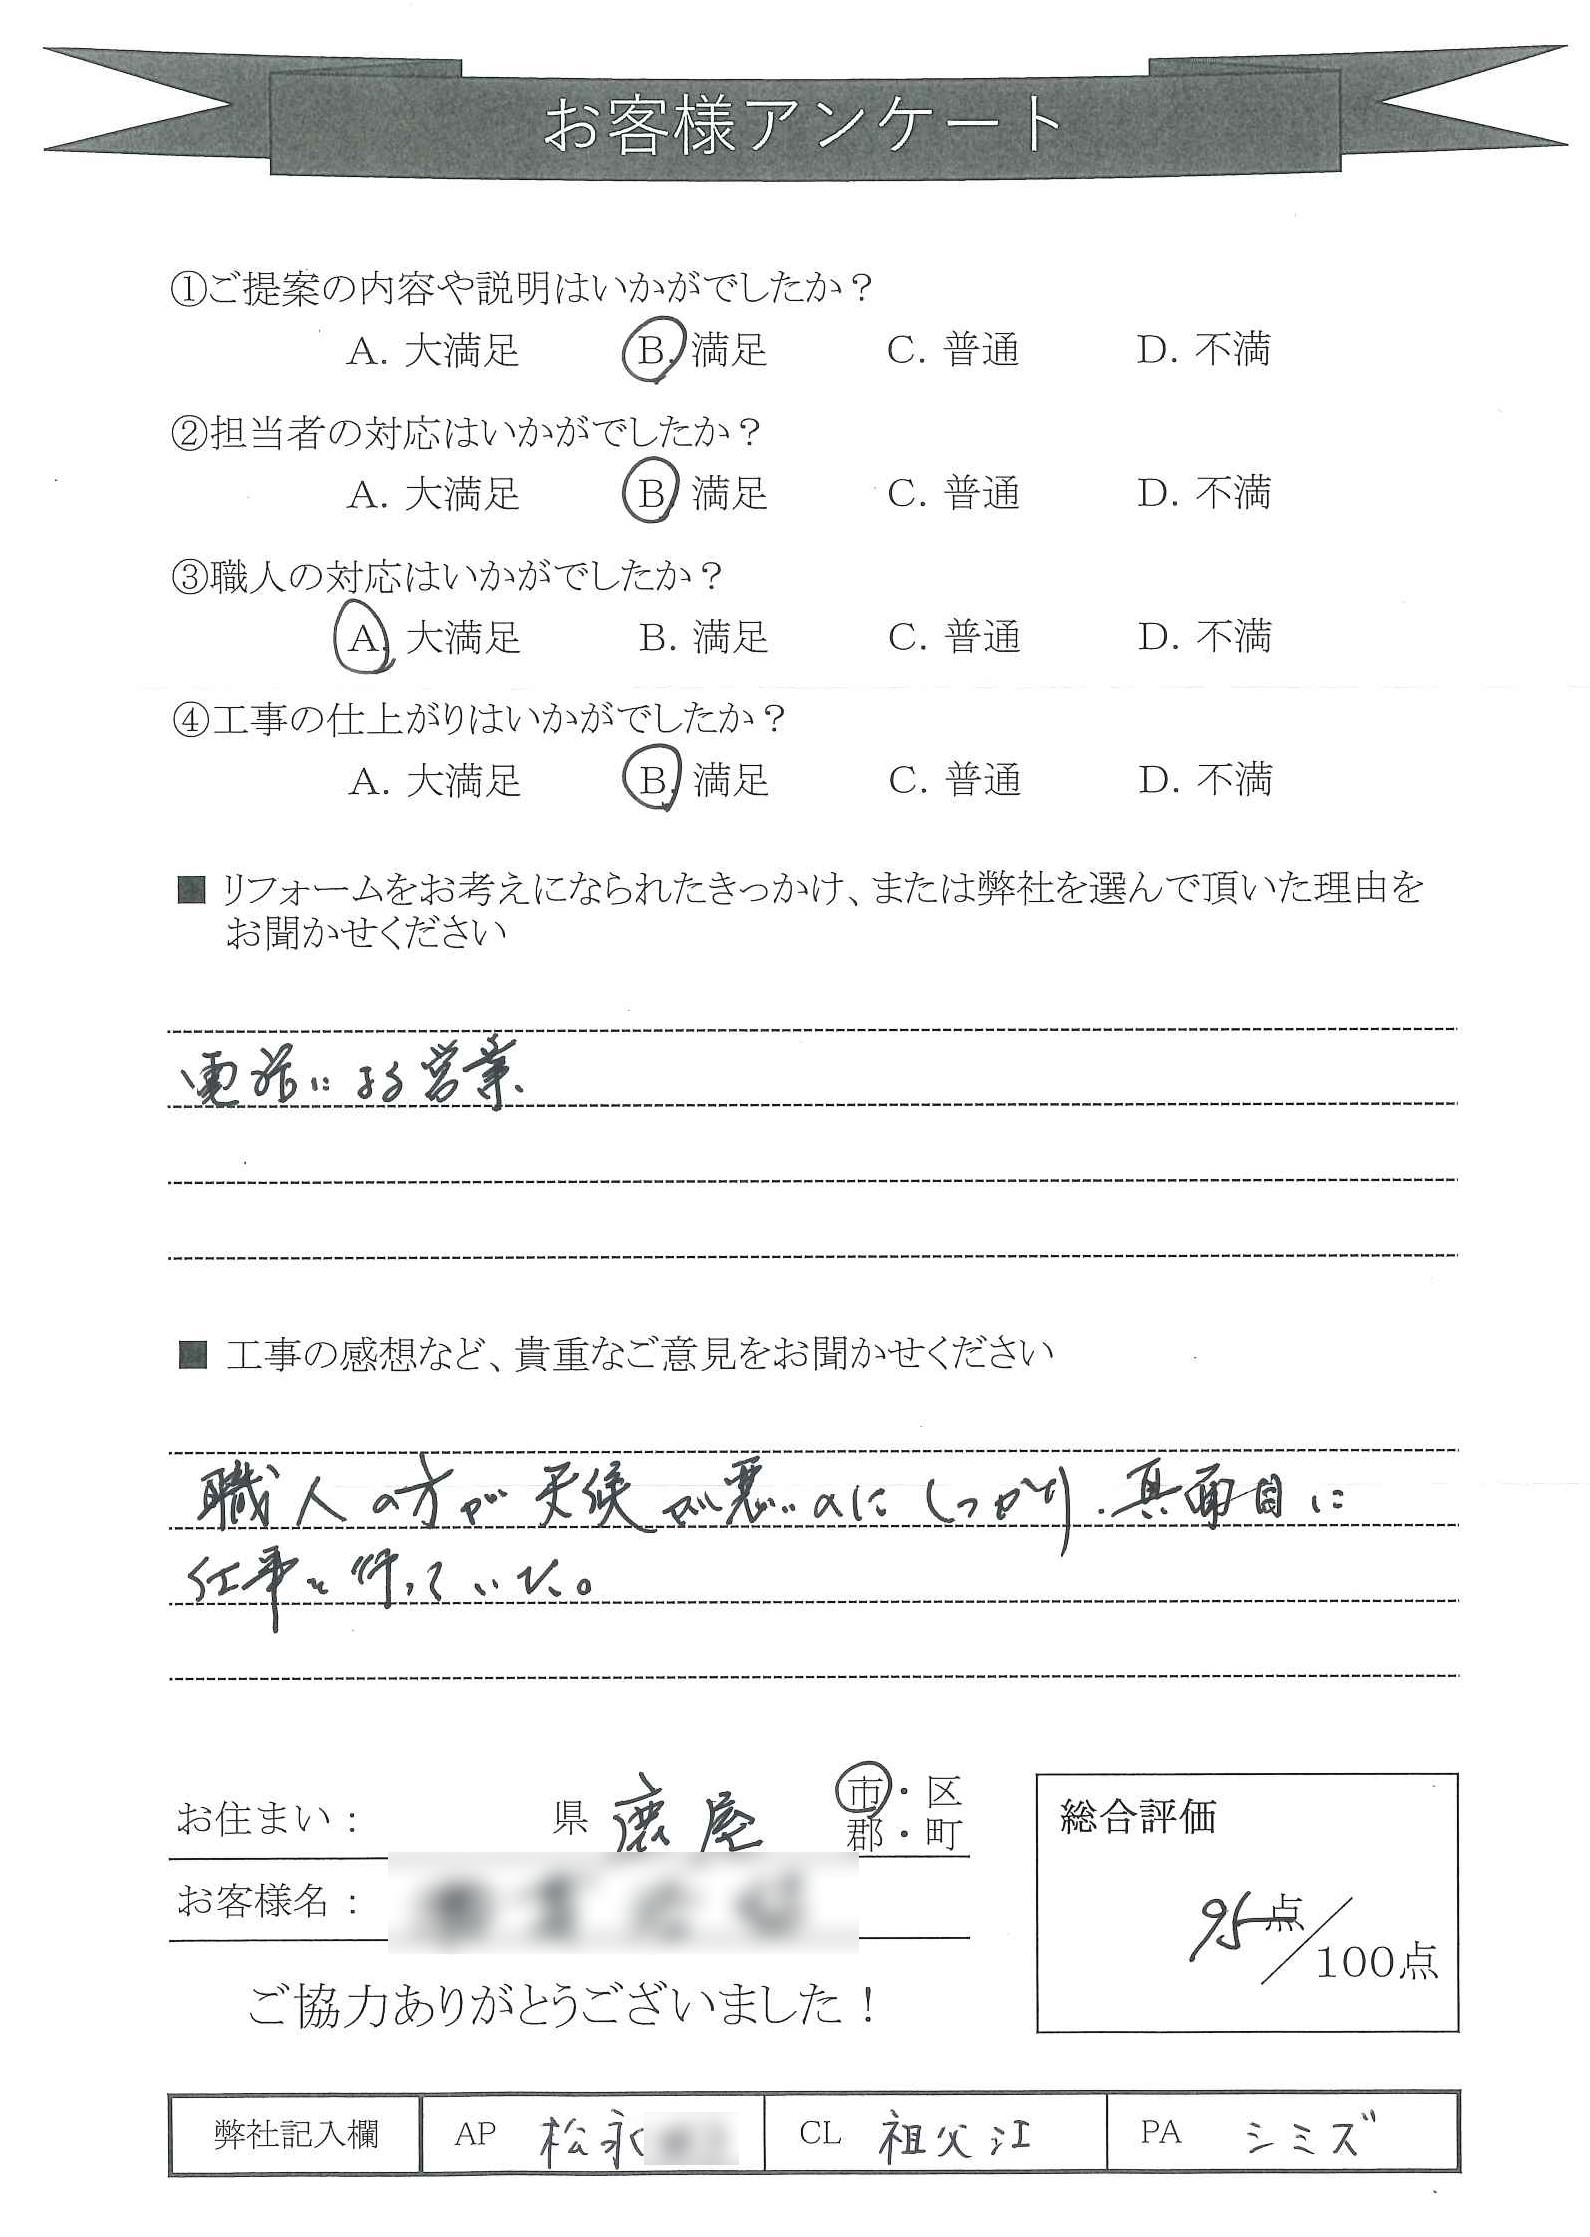 お客様アンケート
①ご提案の内容や説明はいかがでしたか？
A. 大満足 B. 満足 C. 普通 D. 不満
②担当者の対応はいかがでしたか？
A. 大満足 B. 満足 C. 普通 D. 不満
③職人の対応はいかがでしたか？
A. 大満足 B. 満足 C. 普通 D. 不満
④工事の仕上がりはいかがでしたか？
A. 大満足 B. 満足 C. 普通 D. 不満
■ リフォームをお考えになられたきっかけ、または弊社を選んで頂いた理由を
お聞かせください
電話による営業
■ 工事の感想など、貴重なご意見をお聞かせください
職人の方が天候が悪いのにしっかり、真面目に
仕事を行っていた。
お住まい： 県 鹿屋 市・区
郡・町
お客様名：
総合評価
95点／100点
ご協力ありがとうございました！
弊社記入欄 AP 松永 CL 祖父江 PA シミズ